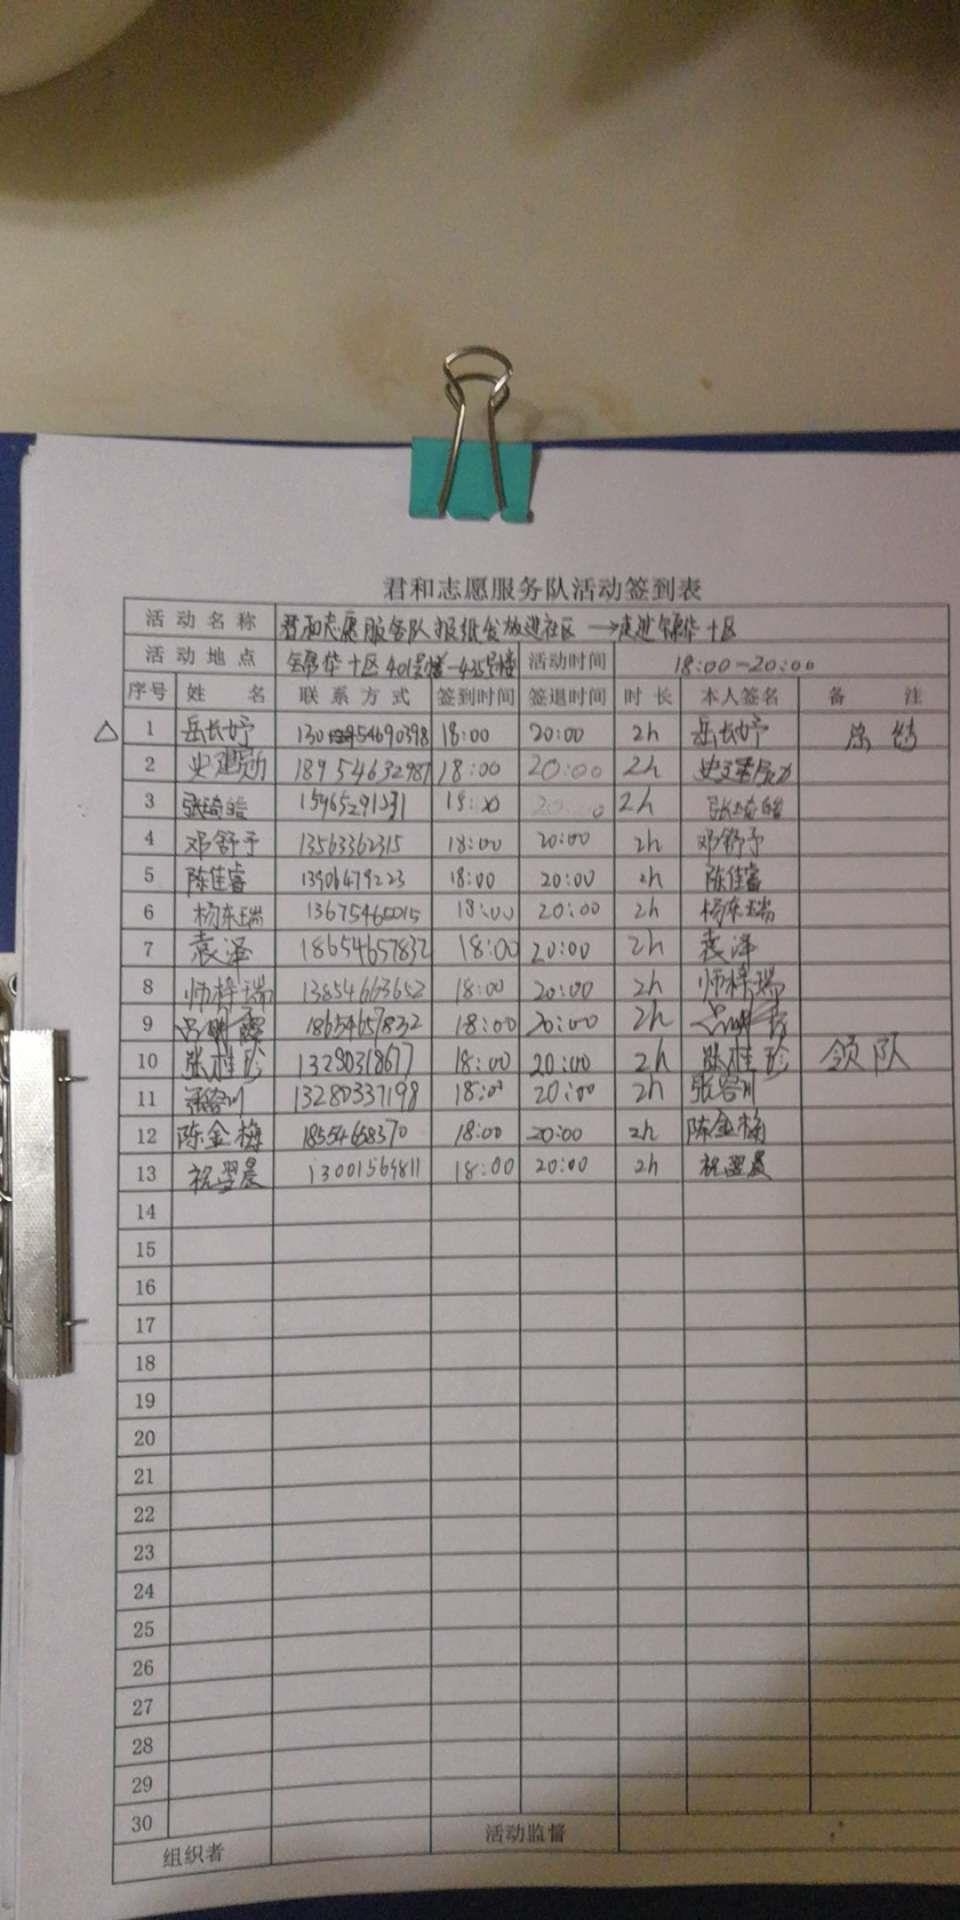 君和志愿服务队活动签到表
活动名称 君和志愿服务队报纸发放进社区→走进锦华十区
活动地点 锦华十区401号楼-435号楼 活动时间 18:00-20:00
序号 姓名 联系方式 签到时间 签退时间 时长 本人签名 备注
△ 1 岳长妤 130 54690398 18:00 20:00 2h 岳长妤 总结
2 史建勋 18954632987 18:00 20:00 2h 史建勋
3 张琦皓 15965291231 18:00 20:00 2h 张琦皓
4 邓舒予 13563362315 18:00 20:00 2h 邓舒予
5 陈佳睿 13906479223 18:00 20:00 2h 陈佳睿
6 杨东瑞 13675465015 18:00 20:00 2h 杨东瑞
7 袁泽 18654657832 18:00 20:00 2h 袁泽
8 师梓瑞 13854663652 18:00 20:00 2h 师梓瑞
9 18654657832 18:00 20:00 2h
10 张桂珍 13280318677 18:00 20:00 2h 张桂珍 领队
11 张容川 13280337198 18:00 20:00 2h 张容川
12 陈金梅 18554658370 18:00 20:00 2h 陈金梅
13 祝翌晨 13001564811 18:00 20:00 2h 祝翌晨
14
15
16
17
18
19
20
21
22
23
24
25
26
27
28
29
30
组织者 活动监督